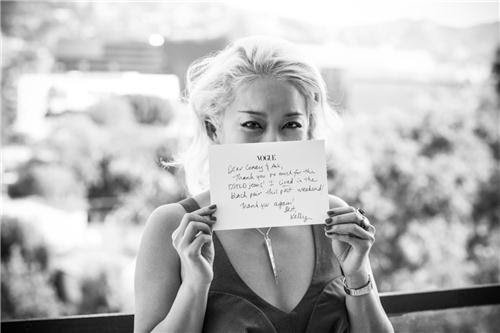 VOGUE
Dear Corey & Ash,
Thank you so much for the
DSTLD jeans! I lived in the
black pair this past weekend!
Thank you again!
Kelly